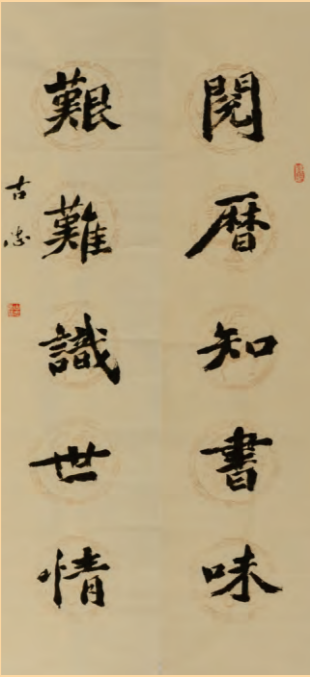 閱曆知書味
艱難識世情
古